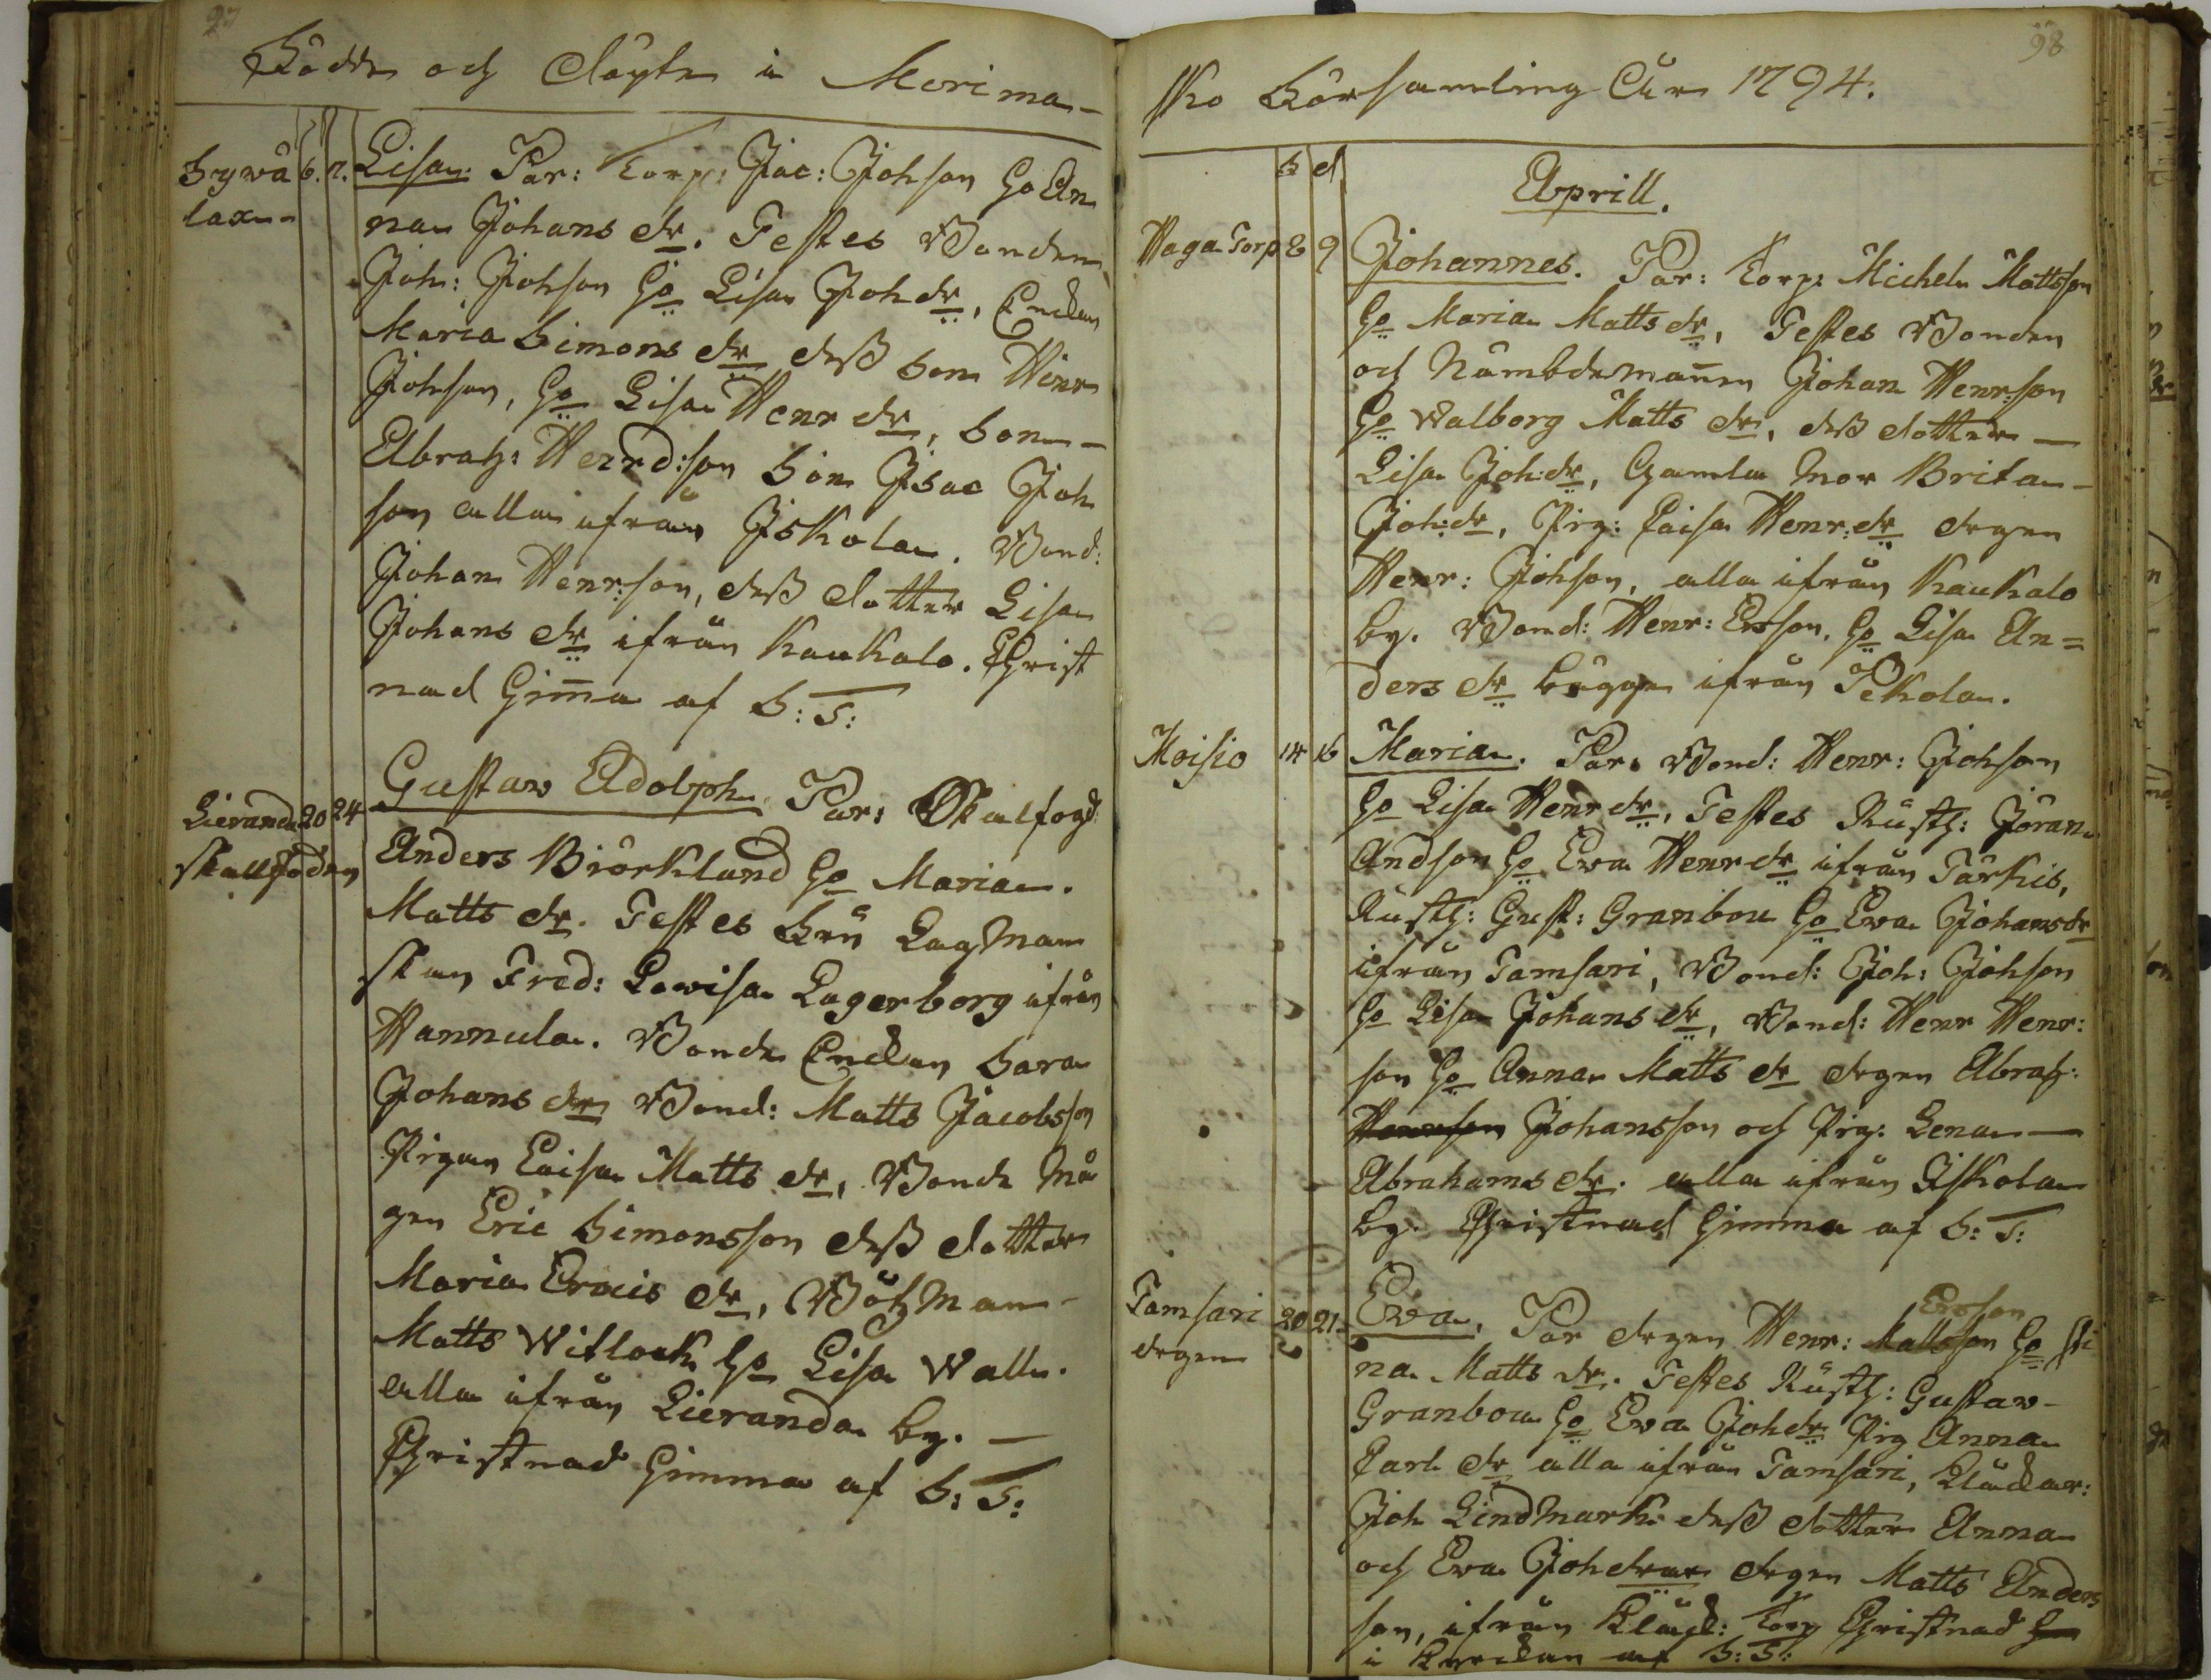 97
Födde och Döpte i Merima-
Sywä 6. 7. Lisa. Par: Torp: Jac: Johson Ho An
laxen
na Johans dr. Testes Bonden
Joh: Johson Ho Lisa Joh dr, Enckan
Maria Simons dr dess Son Henr
Johson, Ho Lisa Henr dr, Son
Abrah: Henrd:son Son Isac Joh
son alla ifrån Iskola. Bond:
Johan Henr:son, dess dotter Lisa
Johans dr ifrån Kaukola. Christ
nad Hemma af S: T:
Lieranda 20 24 Gustaw Adolph. Par:
skallfoden
Anders Biörklund Ho Maria
Matts dr. Testes Fru Lagman
skan Fred: Lowisa Lagerborg ifrån
Hannula. Bonde Enckan Sara
Johans dr Bond: Matts Jacobsson
Pigan Caisa Matts dr, Bonde Må
gen Eric Simonsson dess dotter
Maria Erics dr, Båtzman
Matts Witlock Ho Lisa Wall.
alla ifrån Lieranda by.
Christnad Hemma af S: T:
98
sko Församling Åhr 1794.
F d
Aprill.
Haga Torp 8 9 Johannes. Par: Torp: Michel Mattsson
Ho Maria Matts dr, Testes Bonden
och Nämbdemannen Johan Henr:son
Ho Walborg Matts dr, dess dotter
Lisa Joh:dr, Gamla Mor Brita
Joh:dr, Pig: Caisa Henr:dr drgen
Henr: Johson, alla ifrån Kaukola
by. Bond: Henr: Erson, Ho Lisa An=
ders dr bägge ifrån Pekola.
Moisio 14 16 Maria. Par: Bond: Henr: Johson
Ho Lisa Henr dr, Testes Rusth: Jöran
Andson Ho Ewa Henr dr ifrån Tärkis,
Rusth: Gust: Granbom Ho Ewa Johans dr
ifrån Tamsari, Bond: Joh: Johson
Ho Lisa Johans dr, Bond: Henr Henr:
son Ho Anna Matts dr drgen Abrah:
Henrson Johansson och Pig: Lena
Abrahams dr. alla ifrån Iskola
by. Christnad Hemma af S: T:
Tamsari 20 21 Ewa. Par drgen Henr: Mattsson Erson Ho Sti
drgen
na Matts dr. Testes Rusth: Gustaw
Granbom Ho Ewa Joh dr Pig Anna
Carl dr alla ifrån Tamsari, Klåckar:
Joh Lindmark dess dotter Anna
och Ewa Joh drar drgen Matts Anders
son, ifrån Klåck: Torp Christnad
i Kyrckan af S: T: